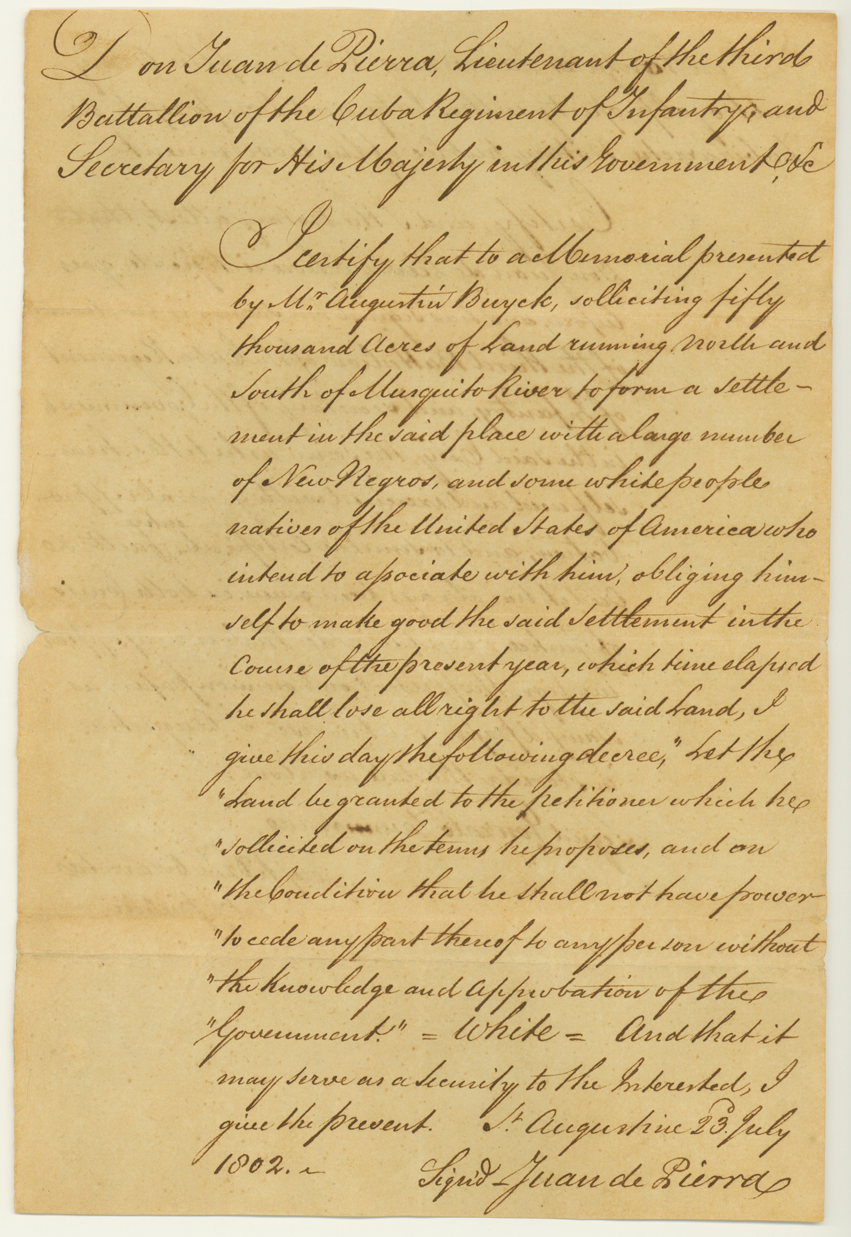 Don Juan de Pierra, Lieutenant of the third
Battallion of the Cuba Regiment of Infantry, and
Secretary for His Majesty in this Government &c
I certify that to a Memorial presented
by Mr. Augustin Buyck, solliciting fifty
thousand Acres of Land running North and
South of Musquito River to form a settle-
ment in the said place with a large number
of New Negros, and some white people
natives of the United States of America who
intend to associate with him, obliging him-
self to make good the said Settlement in the
Course of the present year, which time elapsed
he shall lose all right to the said Land, I
give this day the following decree, "Let the
"Land be granted to the petitioner which he
"sollicited on the terms he proposes, and on
"the Condition that he shall not have power
"to cede any part thereof to any person without
"the Knowledge and Approbation of the
"Government." = White = And that it
may serve as a security to the Interested, I
give the present. St. Augustine 23d. July
1802.
Sign'd Juan de Pierra